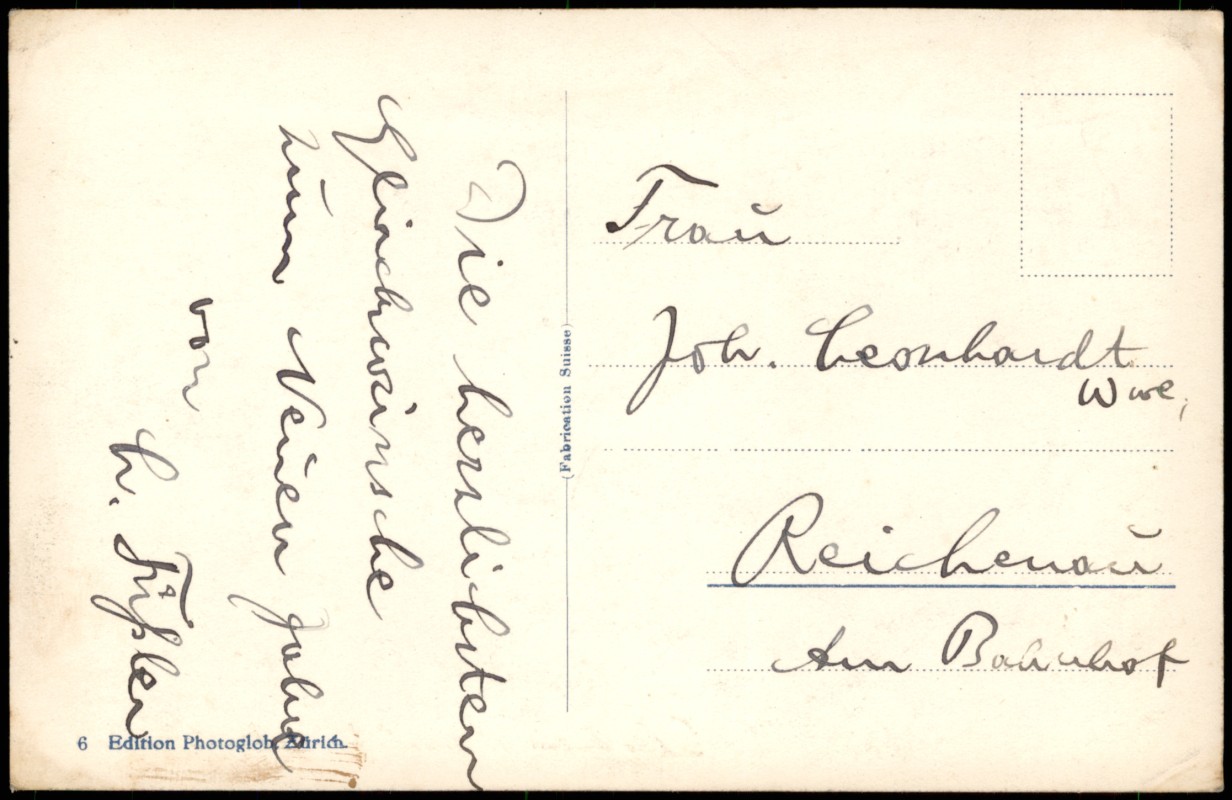 Die herzlichsten
Glückwünsche
zum Neuen Jahre
von
L. Fäßler
(Fabrication Suisse)
Frau
Joh. Leonhardt
Wwe,
Reichenau
Am Bahnhof
6 Edition Photoglob, Zürich.